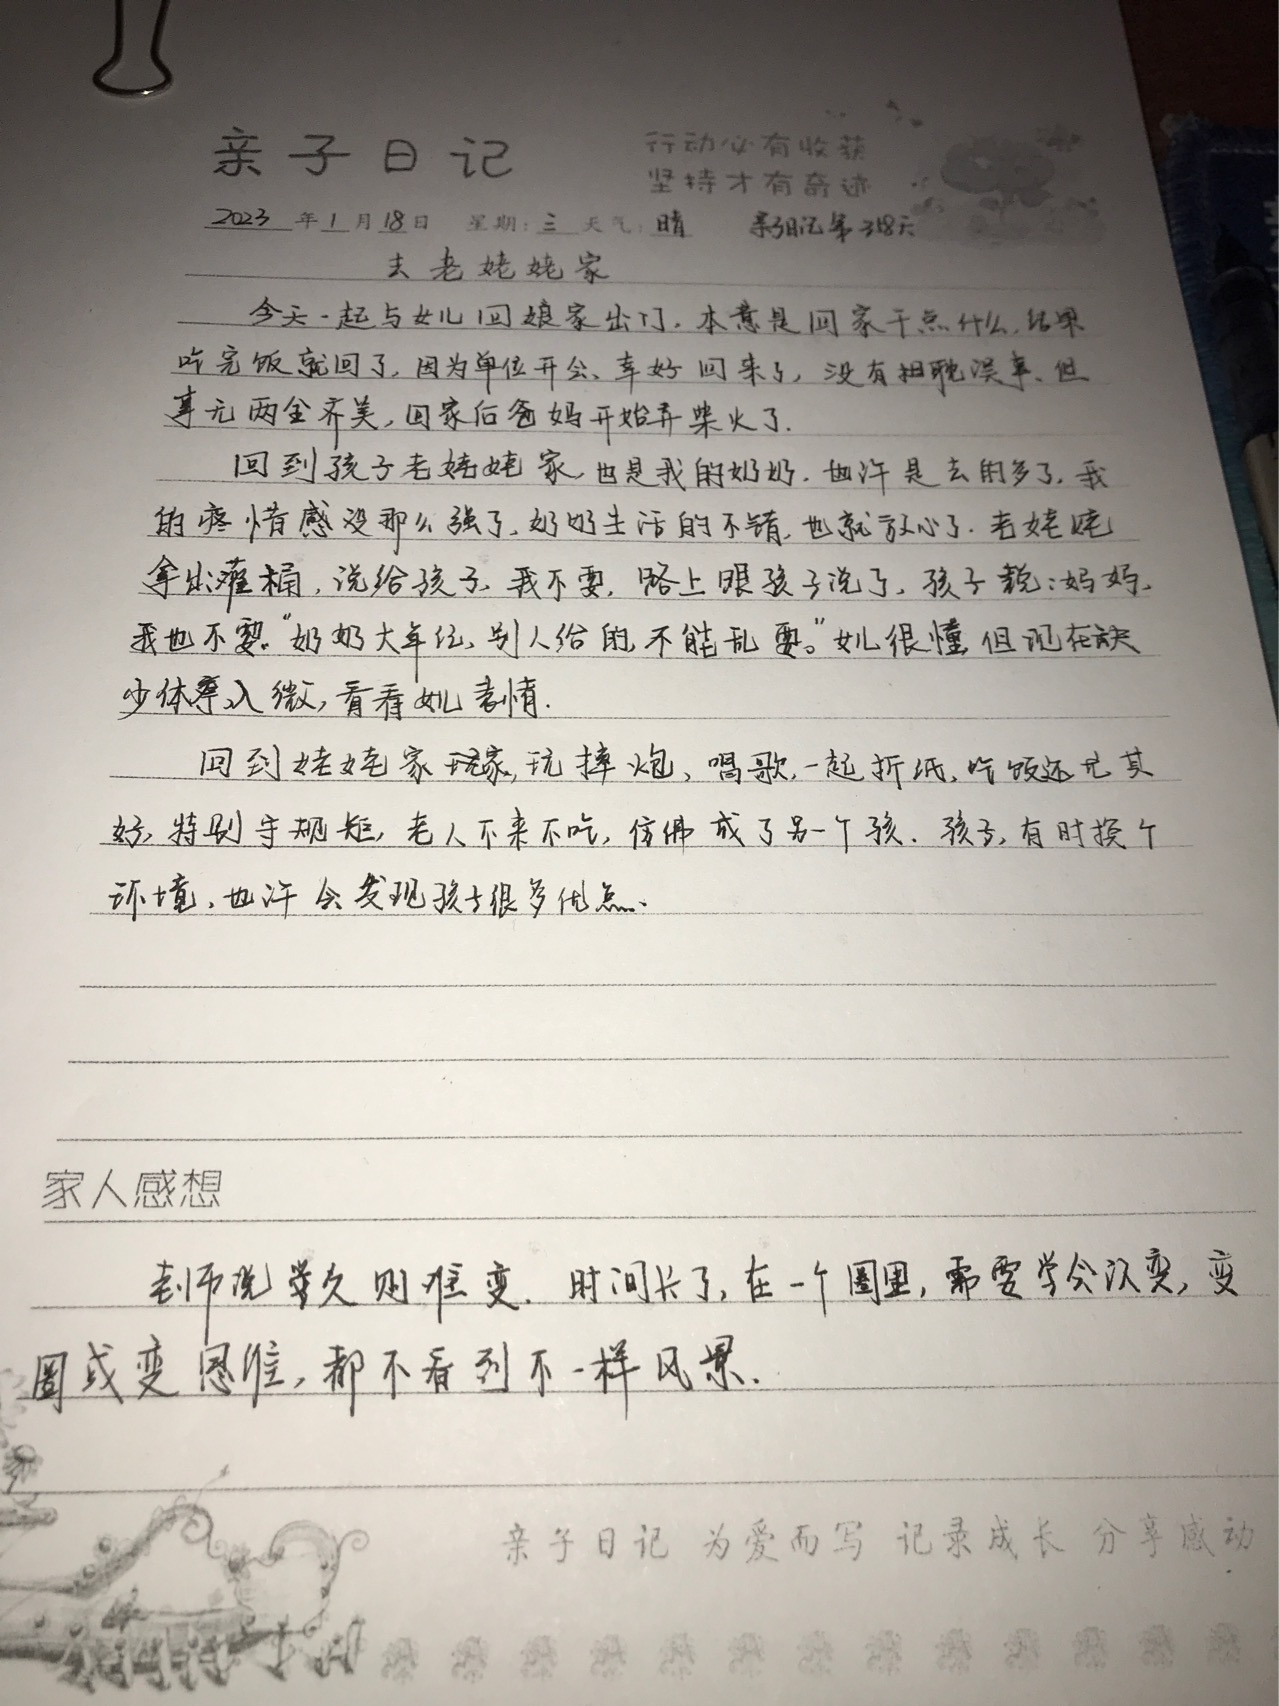 亲子日记
行动必有收获
坚持才有奇迹
2023年1月18日 星期:三 天气:晴 亲子日记第318天
去老姥姥家
今天一起与女儿回娘家出门,本意是回家干点什么,结果
吃完饭就回了,因为单位开会、幸好回来了,没有担耽误事、但
事无两全齐美,回家后爸妈开始弄柴火了.
回到孩子老姥姥家,也是我的奶奶.也许是去的多了,我
的疼惜感没那么强了,奶奶生活的不错,也就放心了.老姥姥
拿出灌桶,说给孩子,我不要,路上跟孩子说了,孩子说:妈妈,
我也不要。“奶奶大年纪,别人给的不能乱要。”女儿很懂但现在缺
少体察入微,看看女儿表情.
回到姥姥家玩家,玩摔炮,唱歌,一起折纸,吃饭还尤其
好,特别守规矩,老人不来不吃,仿佛成了另一个孩.孩子,有时换个
环境,也许会发现孩子很多优点.
家人感想
老师说学久则难变.时间长了,在一个圈里,需要学会改变,变
圈或变思维,都不看到不一样风景.
亲子日记 为爱而写 记录成长 分享感动